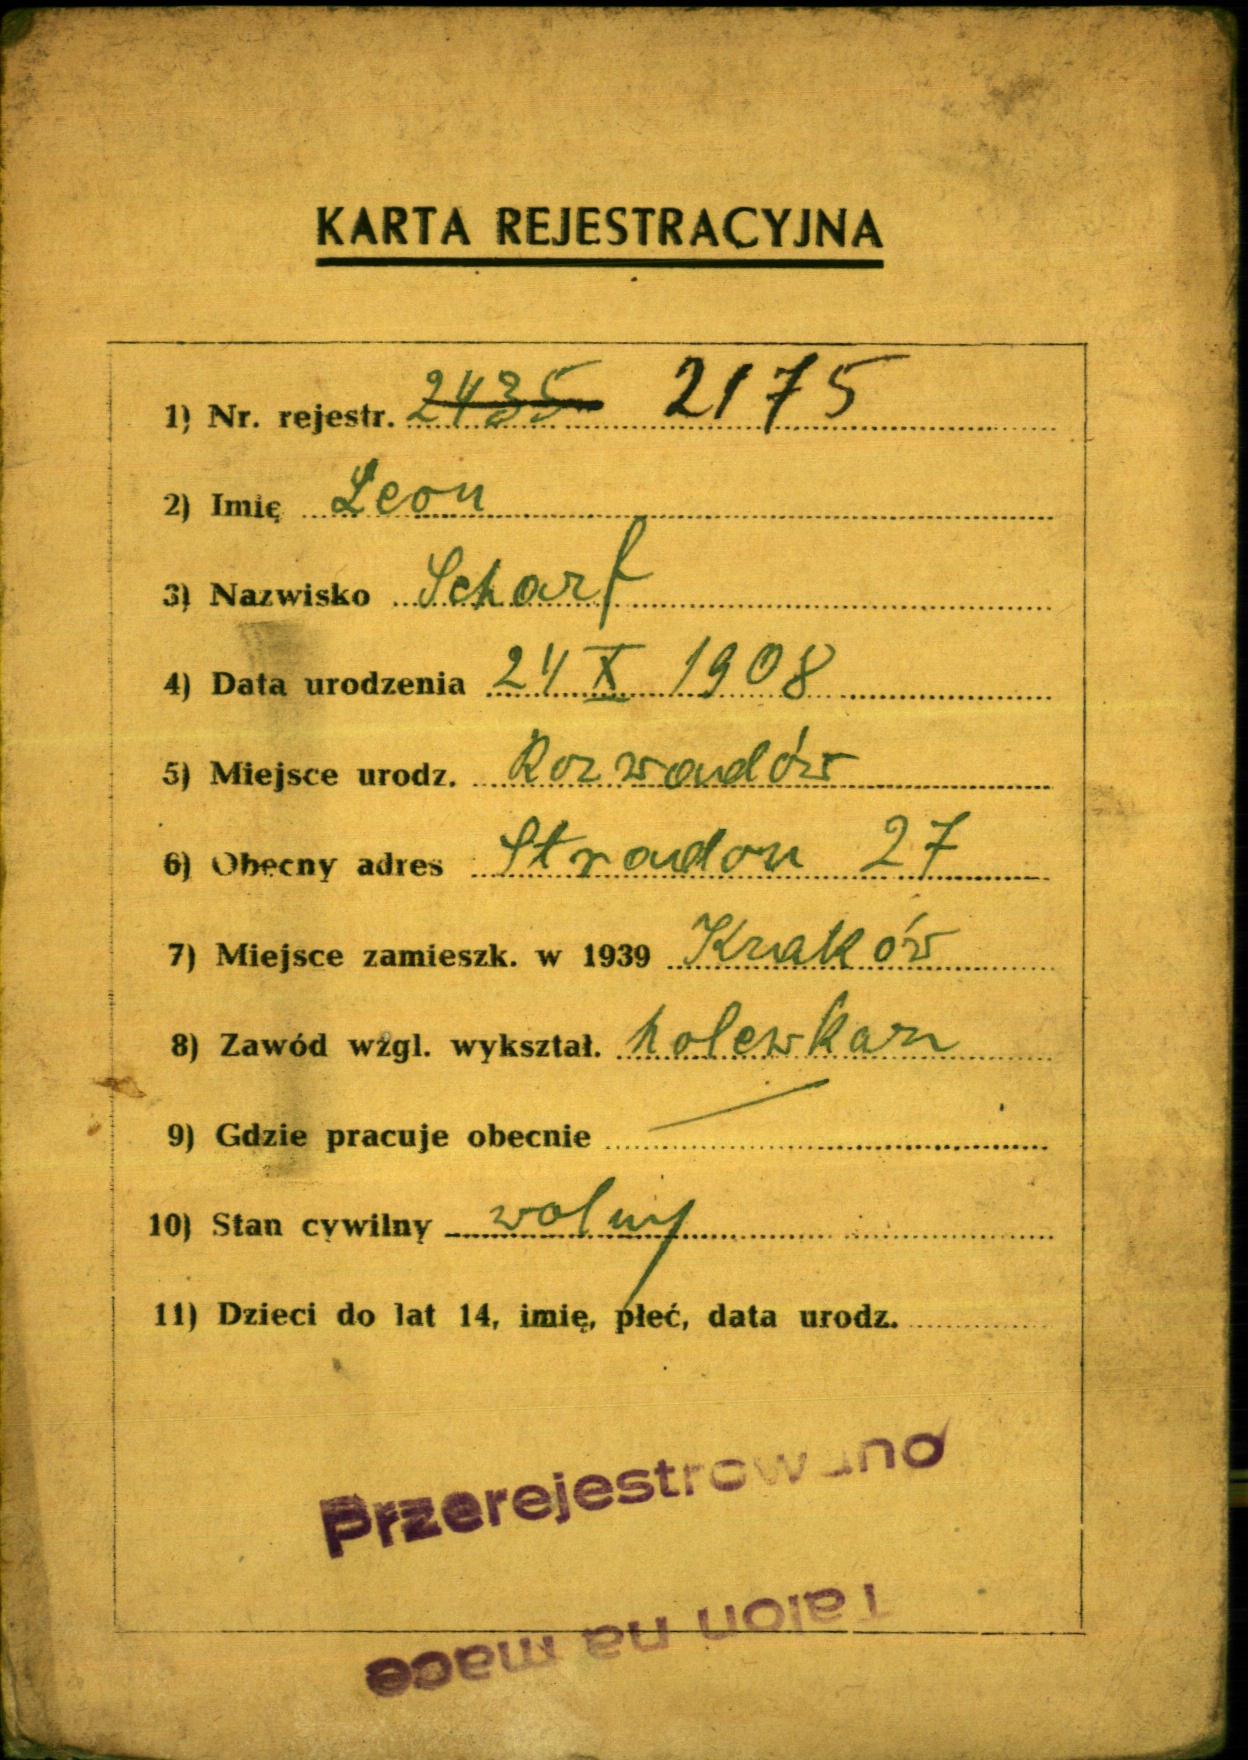 KARTA REJESTRACYJNA
1) Nr. rejestr. 2435 2175
2) Imię Leon
3) Nazwisko Scharf
4) Data urodzenia 24 X 1908
5) Miejsce urodz. Rozwadów
6) Obecny adres Stradom 27
7) Miejsce zamieszk. w 1939 Kraków
8) Zawód wzgl. wykształ. holewkarz
9) Gdzie pracuje obecnie
10) Stan cywilny wolny
11) Dzieci do lat 14, imię, płeć, data urodz.
Przerejestrowano
Talon na mace